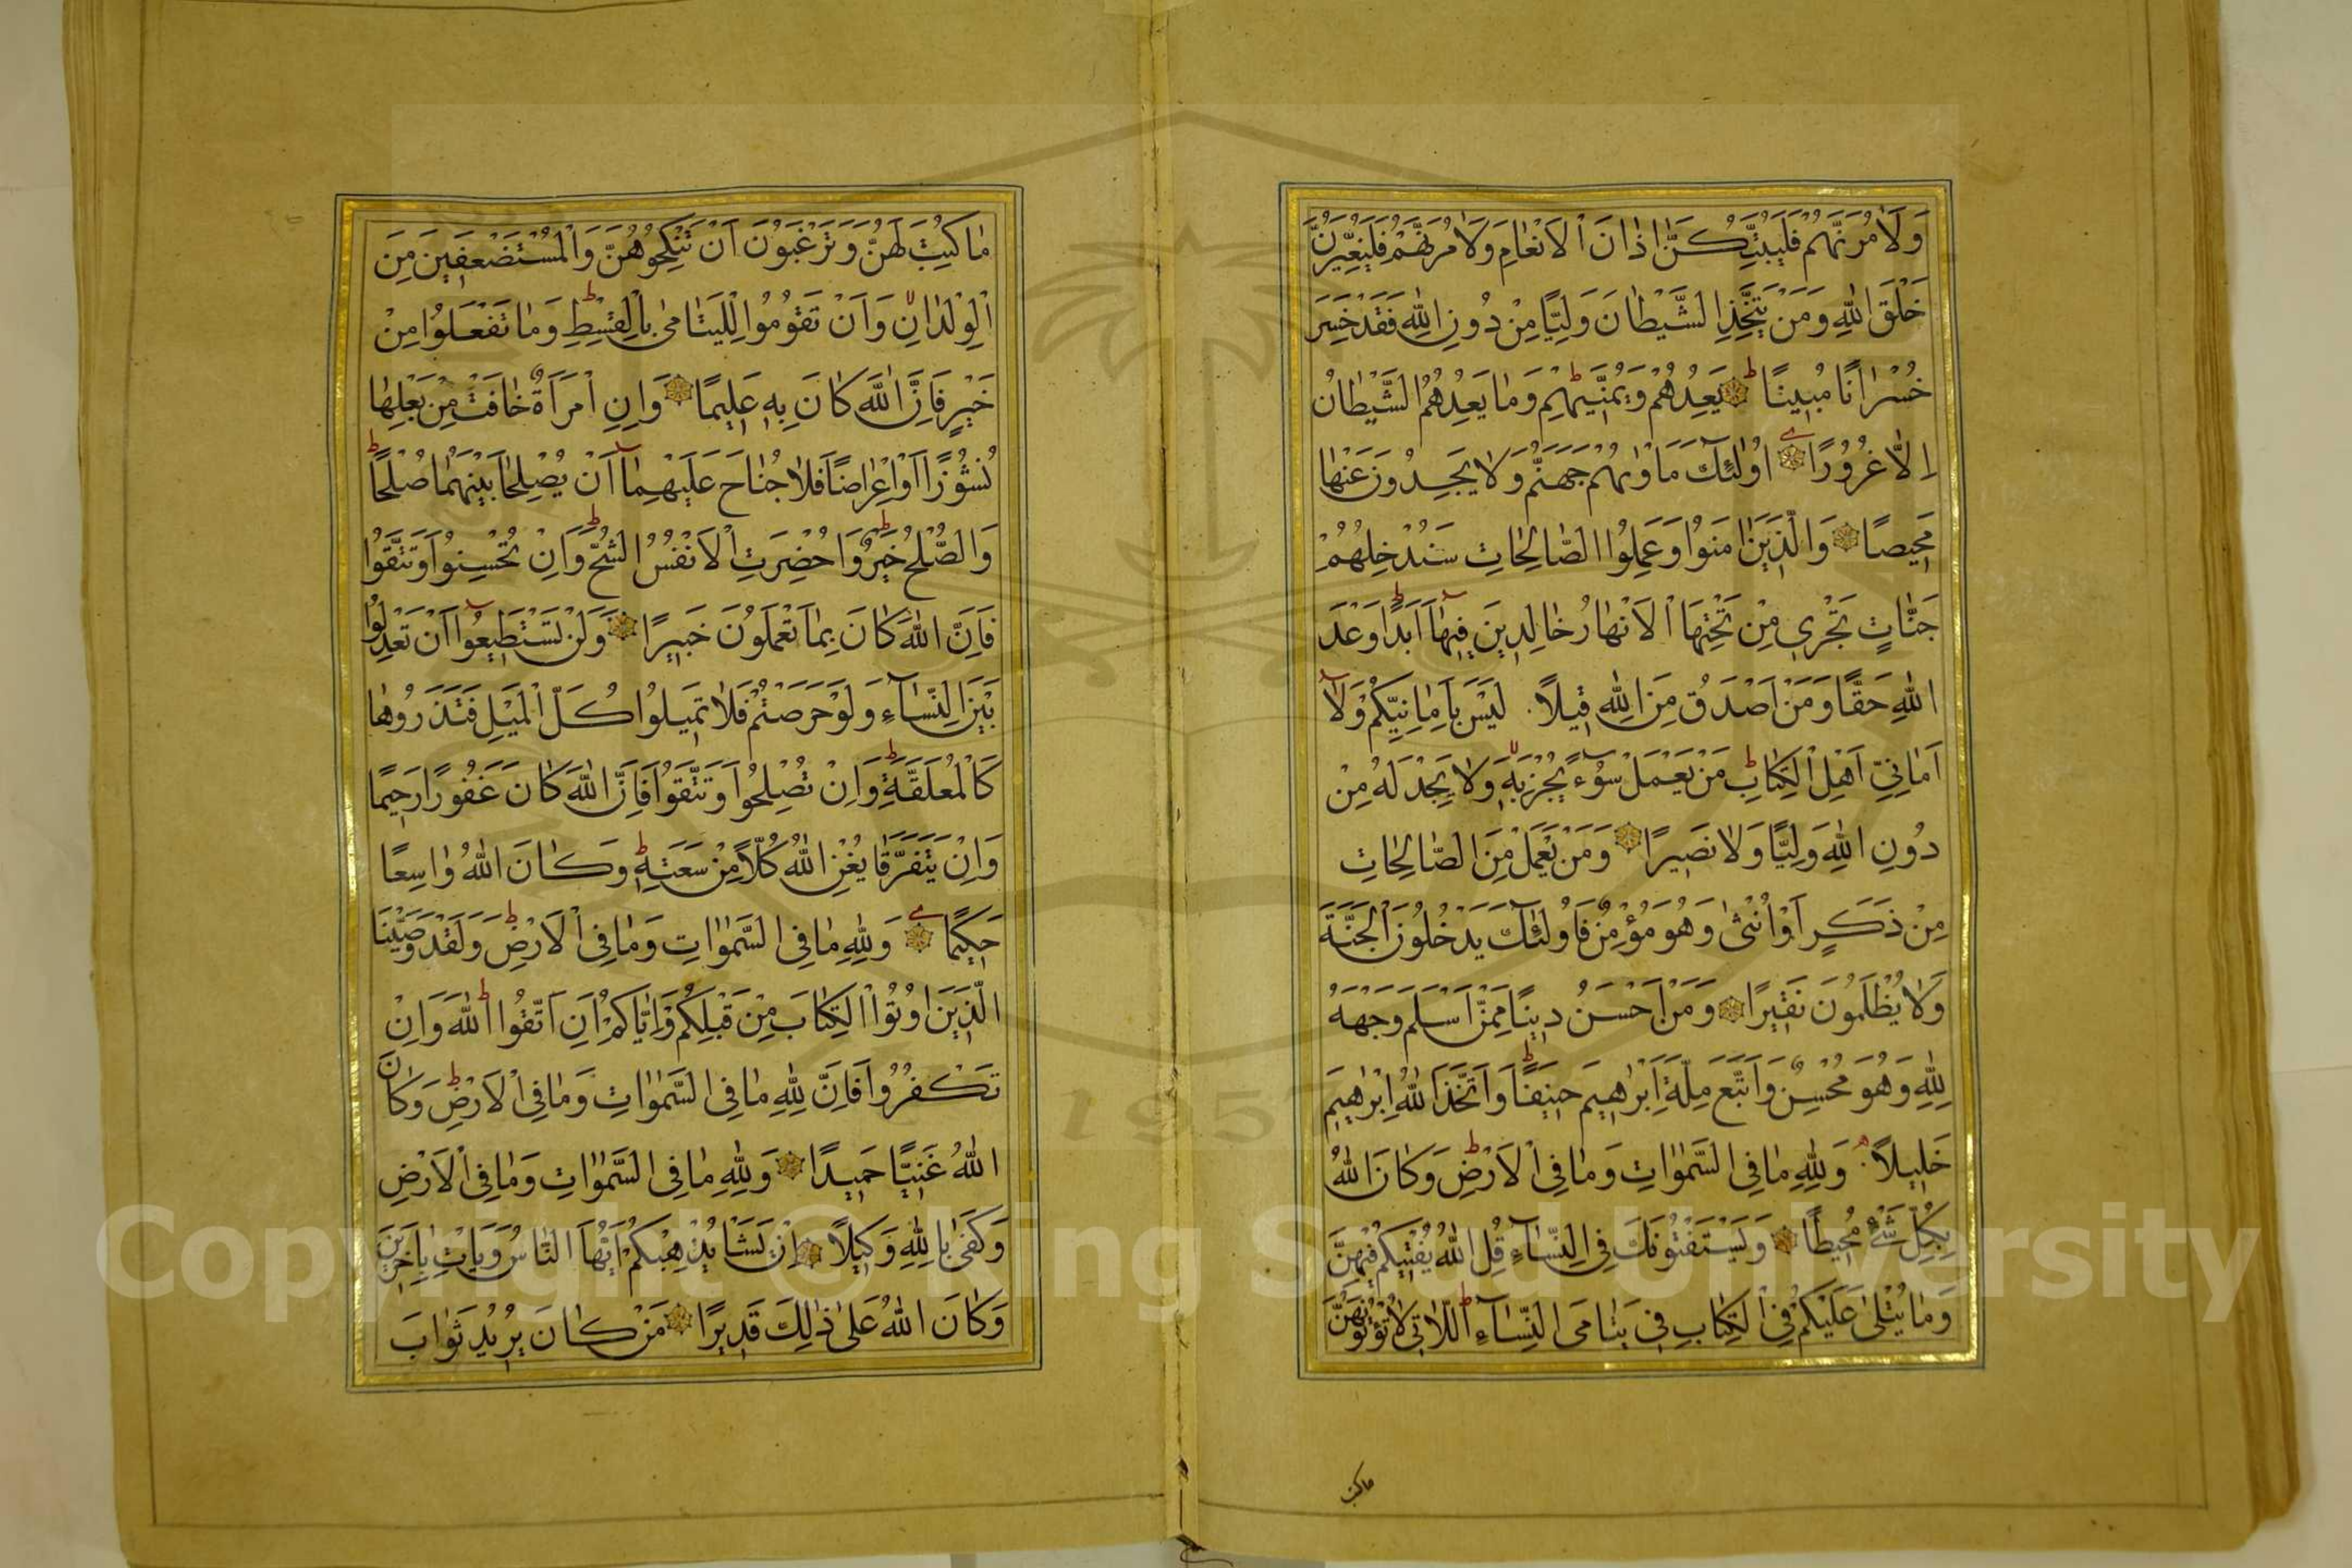 وَلَاٰمُرَنَّهُمْ فَلَيُبَتِّكُنَّ اٰذَانَ الْاَنْعَامِ وَلَاٰمُرَنَّهُمْ فَلَيُغَيِّرُنَّ
خَلْقَ اللّٰهِ وَمَنْ يَتَّخِذِ الشَّيْطَانَ وَلِيًّا مِنْ دُونِ اللّٰهِ فَقَدْ خَسِرَ
خُسْرَانًا مُبِينًا ۝ يَعِدُهُمْ وَيُمَنِّيهِمْ وَمَا يَعِدُهُمُ الشَّيْطَانُ
اِلَّا غُرُورًا ۝ اُولٰئِكَ مَاْوٰىهُمْ جَهَنَّمُ وَلَا يَجِدُونَ عَنْهَا
مَحِيصًا ۝ وَالَّذِينَ اٰمَنُوا وَعَمِلُوا الصَّالِحَاتِ سَنُدْخِلُهُمْ
جَنَّاتٍ تَجْرِي مِنْ تَحْتِهَا الْاَنْهَارُ خَالِدِينَ فِيهَا اَبَدًا وَعْدَ
اللّٰهِ حَقًّا وَمَنْ اَصْدَقُ مِنَ اللّٰهِ قِيلًا لَيْسَ بِاَمَانِيِّكُمْ وَلَا
اَمَانِيِّ اَهْلِ الْكِتَابِ مَنْ يَعْمَلْ سُوءًا يُجْزَ بِهِ وَلَا يَجِدْ لَهُ مِنْ
دُونِ اللّٰهِ وَلِيًّا وَلَا نَصِيرًا ۝ وَمَنْ يَعْمَلْ مِنَ الصَّالِحَاتِ
مِنْ ذَكَرٍ اَوْ اُنْثٰى وَهُوَ مُؤْمِنٌ فَاُولٰئِكَ يَدْخُلُونَ الْجَنَّةَ
وَلَا يُظْلَمُونَ نَقِيرًا ۝ وَمَنْ اَحْسَنُ دِينًا مِمَّنْ اَسْلَمَ وَجْهَهُ
لِلّٰهِ وَهُوَ مُحْسِنٌ وَاتَّبَعَ مِلَّةَ اِبْرٰهِيمَ حَنِيفًا وَاتَّخَذَ اللّٰهُ اِبْرٰهِيمَ
خَلِيلًا وَلِلّٰهِ مَا فِي السَّمٰوَاتِ وَمَا فِي الْاَرْضِ وَكَانَ اللّٰهُ
بِكُلِّ شَيْءٍ مُحِيطًا ۝ وَيَسْتَفْتُونَكَ فِي النِّسَاءِ قُلِ اللّٰهُ يُفْتِيكُمْ فِيهِنَّ
وَمَا يُتْلٰى عَلَيْكُمْ فِي الْكِتَابِ فِي يَتَامَى النِّسَاءِ اللَّاتِي لَا تُؤْتُونَهُنَّ
ماكتب
مَا كُتِبَ لَهُنَّ وَتَرْغَبُونَ اَنْ تَنْكِحُوهُنَّ وَالْمُسْتَضْعَفِينَ مِنَ
الْوِلْدَانِ وَاَنْ تَقُومُوا لِلْيَتَامٰى بِالْقِسْطِ وَمَا تَفْعَلُوا مِنْ
خَيْرٍ فَاِنَّ اللّٰهَ كَانَ بِهِ عَلِيمًا ۝ وَاِنِ امْرَاَةٌ خَافَتْ مِنْ بَعْلِهَا
نُشُوزًا اَوْ اِعْرَاضًا فَلَا جُنَاحَ عَلَيْهِمَا اَنْ يُصْلِحَا بَيْنَهُمَا صُلْحًا
وَالصُّلْحُ خَيْرٌ وَاُحْضِرَتِ الْاَنْفُسُ الشُّحَّ وَاِنْ تُحْسِنُوا وَتَتَّقُوا
فَاِنَّ اللّٰهَ كَانَ بِمَا تَعْمَلُونَ خَبِيرًا ۝ وَلَنْ تَسْتَطِيعُوا اَنْ تَعْدِلُوا
بَيْنَ النِّسَاءِ وَلَوْ حَرَصْتُمْ فَلَا تَمِيلُوا كُلَّ الْمَيْلِ فَتَذَرُوهَا
كَالْمُعَلَّقَةِ وَاِنْ تُصْلِحُوا وَتَتَّقُوا فَاِنَّ اللّٰهَ كَانَ غَفُورًا رَحِيمًا
وَاِنْ يَتَفَرَّقَا يُغْنِ اللّٰهُ كُلًّا مِنْ سَعَتِهِ وَكَانَ اللّٰهُ وَاسِعًا
حَكِيمًا ۝ وَلِلّٰهِ مَا فِي السَّمٰوَاتِ وَمَا فِي الْاَرْضِ وَلَقَدْ وَصَّيْنَا
الَّذِينَ اُوتُوا الْكِتَابَ مِنْ قَبْلِكُمْ وَاِيَّاكُمْ اَنِ اتَّقُوا اللّٰهَ وَاِنْ
تَكْفُرُوا فَاِنَّ لِلّٰهِ مَا فِي السَّمٰوَاتِ وَمَا فِي الْاَرْضِ وَكَانَ
اللّٰهُ غَنِيًّا حَمِيدًا ۝ وَلِلّٰهِ مَا فِي السَّمٰوَاتِ وَمَا فِي الْاَرْضِ
وَكَفٰى بِاللّٰهِ وَكِيلًا ۝ اِنْ يَشَأْ يُذْهِبْكُمْ اَيُّهَا النَّاسُ وَيَاْتِ بِاٰخَرِينَ
وَكَانَ اللّٰهُ عَلٰى ذٰلِكَ قَدِيرًا ۝ مَنْ كَانَ يُرِيدُ ثَوَابَ
1957
Copyright © King Saud University